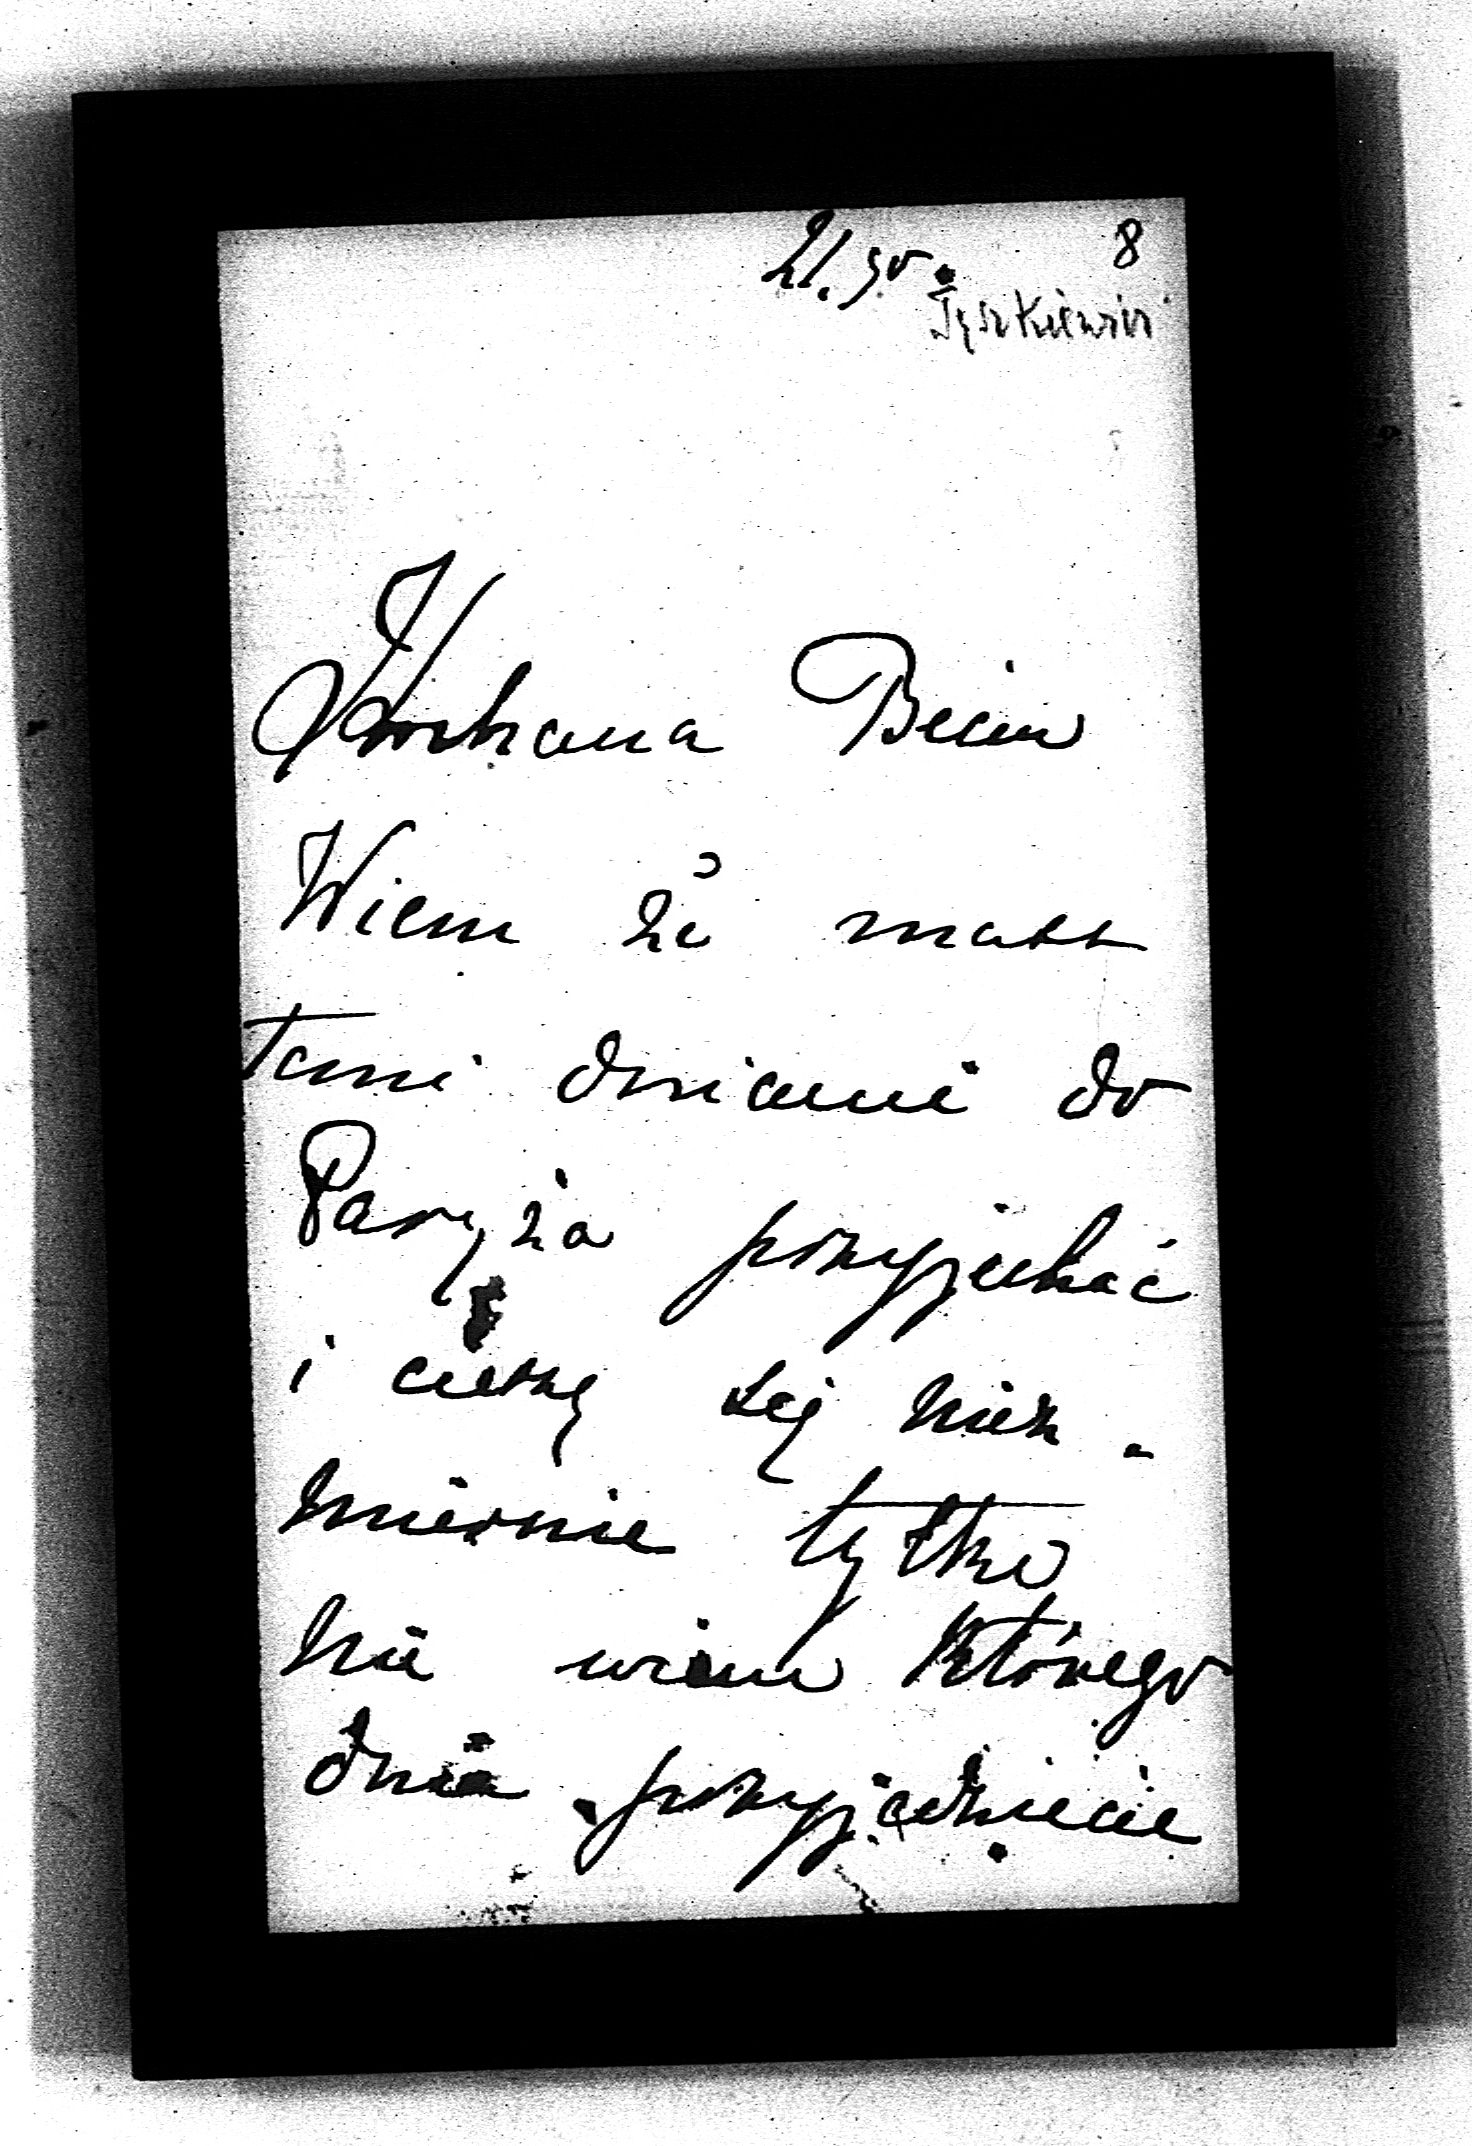 21. 90. 8
Tyszkiewicz
Kochana Beciu
Wiem że masz
temi dniami do
Paryża przyjechać
i cieszę się niez-
miernie tylko
nie wiem którego
dnia przyjedziecie